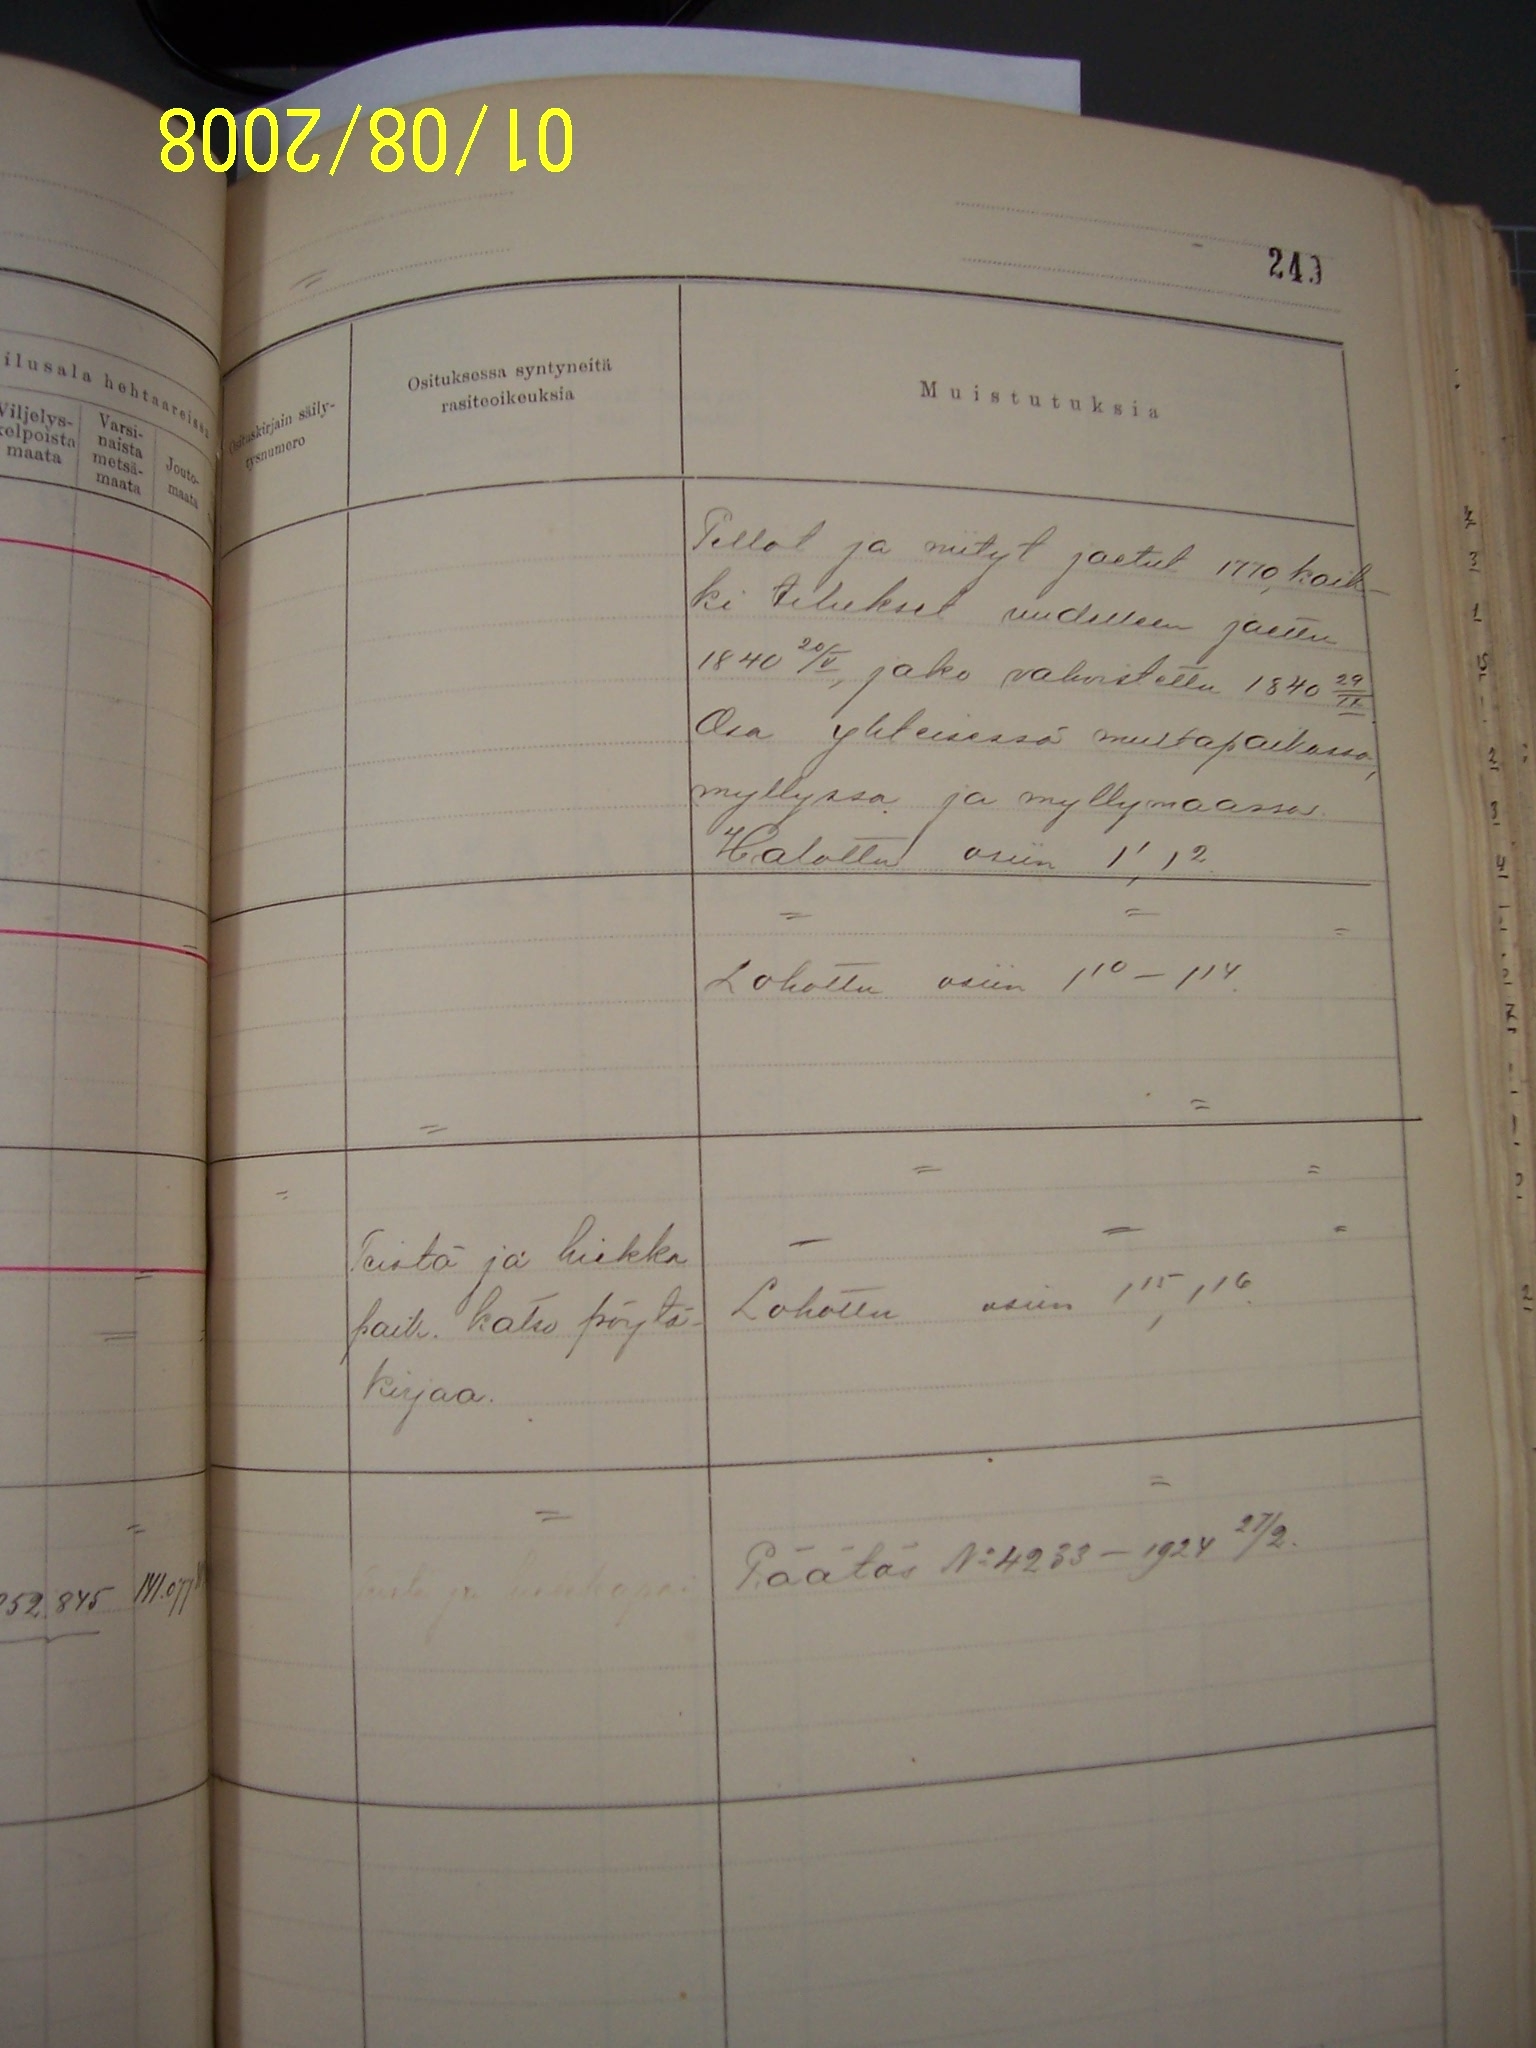 01/08/2008
249
ilusala hehtaareissa
Viljelys-
kelpoista
maata
Varsi-
naista
metsä-
maata
Jouto-
maata
Osituskirjain säily-
tysnumero
Osituksessa syntyneitä
rasiteoikeuksia
Muistutuksia
Pellot ja niityt jaetut 1770, kaik-
ki tilukset uudelleen jaettu
1840 20/V, jako vahvistettu 1840 29/IX.
Osa yhteisessä mutapaikassa,
myllyssa ja myllymaassa.
Halottu osiin 1¹, 1²
= = =
Lohottu osiin 1¹⁰ — 1¹⁴.
= =
= = =
Teistä ja hiekka
paik. katso pöytä-
kirjaa.
Lohottu osiin 1¹⁵, 1¹⁶.
= =
952.845 141.077
Päätös No 4233 — 1924 27/2.